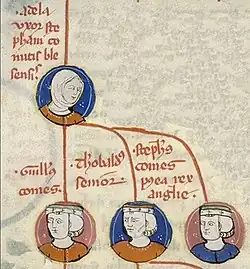 adela
uxor ste
phani co
mitis ble
sensis.
Guill's
comes.
Thobald'
senior.
Steph's
comes
postea rex
anglie.